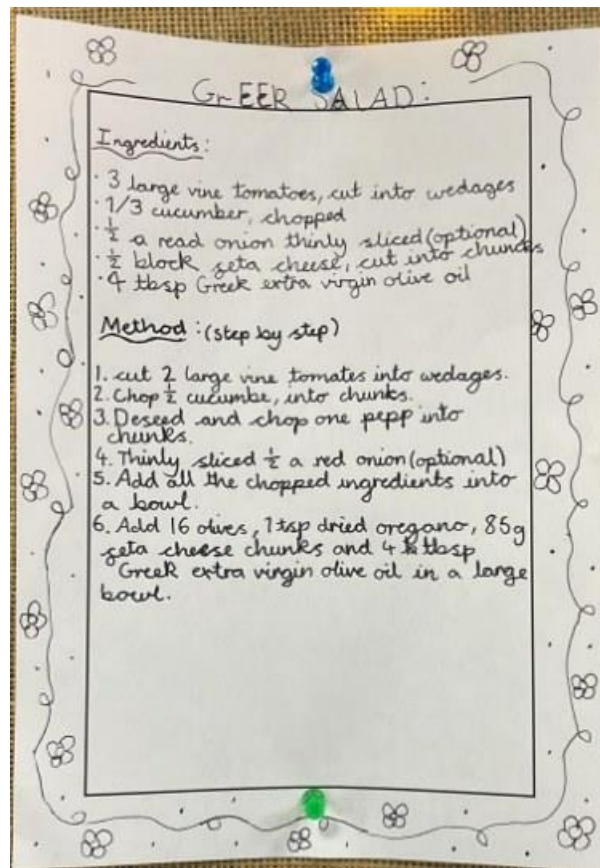 GrEEK SALAD:
Ingredients:
· 3 large vine tomatoes, cut into wedages
· 1/3 cucumber, chopped
· 1/2 a read onion thinly sliced (optional)
· 1/2 block feta cheese, cut into chunces
· 4 tbsp Greek extra virgin olive oil
Method: (step by step)
1. cut 2 large vine tomates into wedages.
2. Chop 1/2 cucumbe, into chunks.
3. Deseed and chop one pepp into
chunks.
4. Thinly sliced 1/2 a red onion (optional)
5. Add all the chopped ingredients into
a bowl.
6. Add 16 olives, 1 tsp dried oregano, 85g
feta cheese chunks and 4 tbsp
Greek extra virgin olive oil in a large
bowl.